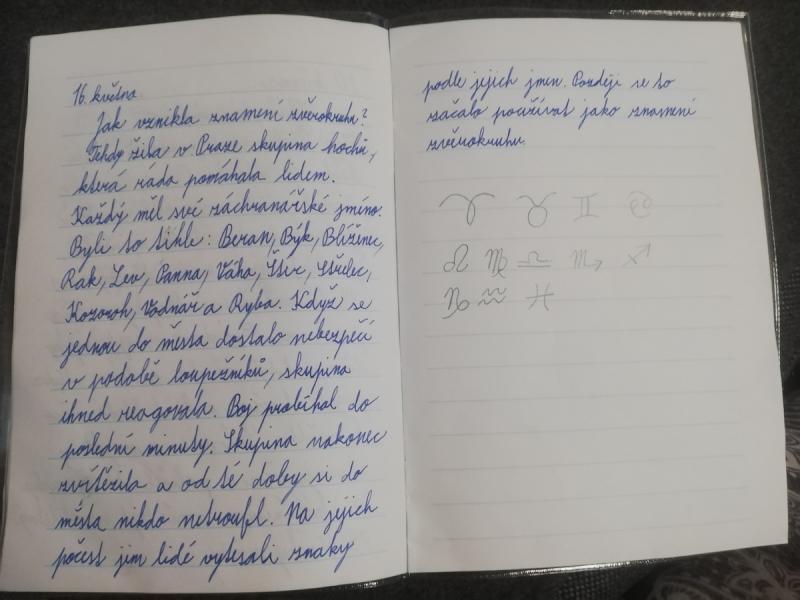 16. května
Jak vznikla znamení zvěrokruhu?
Tehdy žila v Praze skupina hochů,
která ráda pomáhala lidem.
Každý měl své záchranářské jméno.
Byli to tihle: Beran, Býk, Blíženec,
Rak, Lev, Panna, Váha, Štír, Střelec,
Kozoroh, Vodnář a Ryba. Když se
jednou do města dostalo nebezpečí
v podobě loupežníků, skupina
ihned reagovala. Boj probíhal do
poslední minuty. Skupina nakonec
zvítězila a od té doby si do
města nikdo netroufl. Na jejich
počest jim lidé vytesali znaky
podle jejich jmen. Později se to
začalo používat jako znamení
zvěrokruhu.
♈ ♉ ♊ ♋
♌ ♍ ♎ ♏ ♐
♑ ♒ ♓